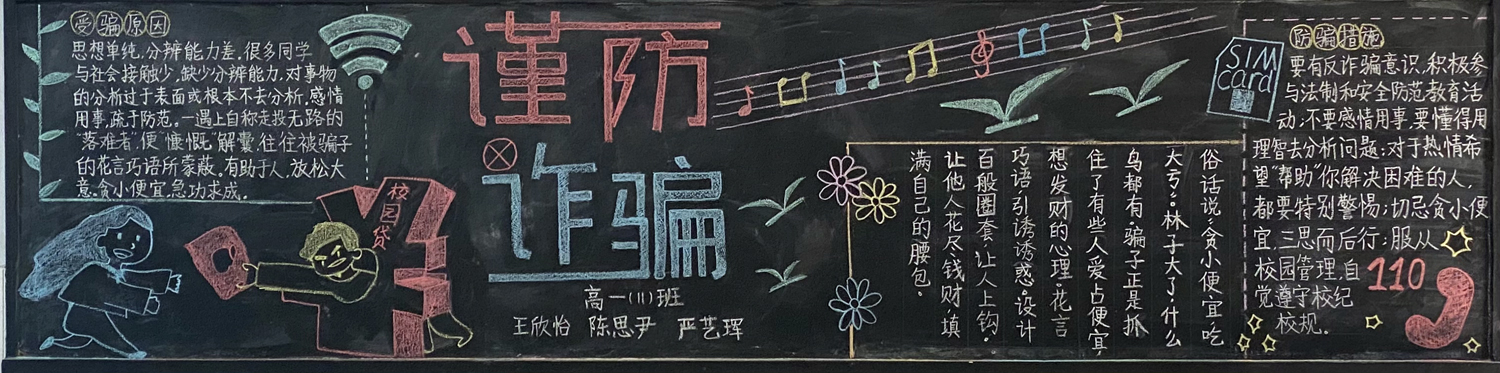 受骗原因
思想单纯,分辨能力差,很多同学
与社会接触少,缺少分辨能力,对事物
的分析过于表面或根本不去分析,感情
用事,疏于防范。一遇上自称走投无路的
"落难者",便"慷慨"解囊,往往被骗子
的花言巧语所蒙蔽。有助于人,放松大
意。贪小便宜,急功求成。
校园贷
谨防
诈骗
高一(11)班
王欣怡 陈思尹 严艺珲
俗话说:贪小便宜吃
大亏。林子大了,什么
鸟都有。骗子正是抓
住了有些人爱占便宜,
想发财的心理。花言
巧语,引诱诱惑。设计
百般圈套,让人上钩。
让他人花尽钱财,填
满自己的腰包。
SIM
card
防骗措施
要有反诈骗意识,积极参
与法制和安全防范教育活
动;不要感情用事,要懂得用
理智去分析问题;对于热情希
望"帮助"你解决困难的人,
都要特别警惕;切忌贪小便
宜,三思而后行;服从
校园管理,自
觉遵守校纪
校规。
110